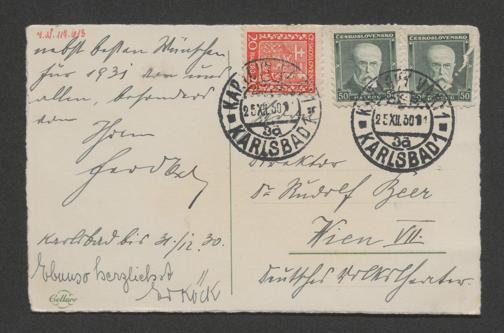 4.N.119.413
nebst besten Wünschen
für 1931 von uns
allen, besonders
von Ihrem
Karlsbad bis 31/12.30.
Ebenso herzlichst
Ed Köck
Cellaro
20
ČESKOSLOVENSKO
50
ČESKOSLOVENSKO
50
KARLOVY VARY 1
25 XII 30
3a
KARLSBAD 1
KARLOVY VARY 1
25 XII 30
3a
KARLSBAD 1
Direktor
Dr Rudolf Beer
Wien VII.
Deutsches Volkstheater.